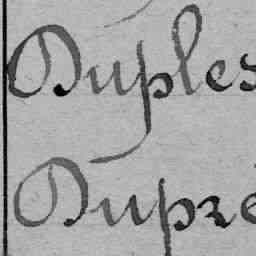 Duples
Dupré